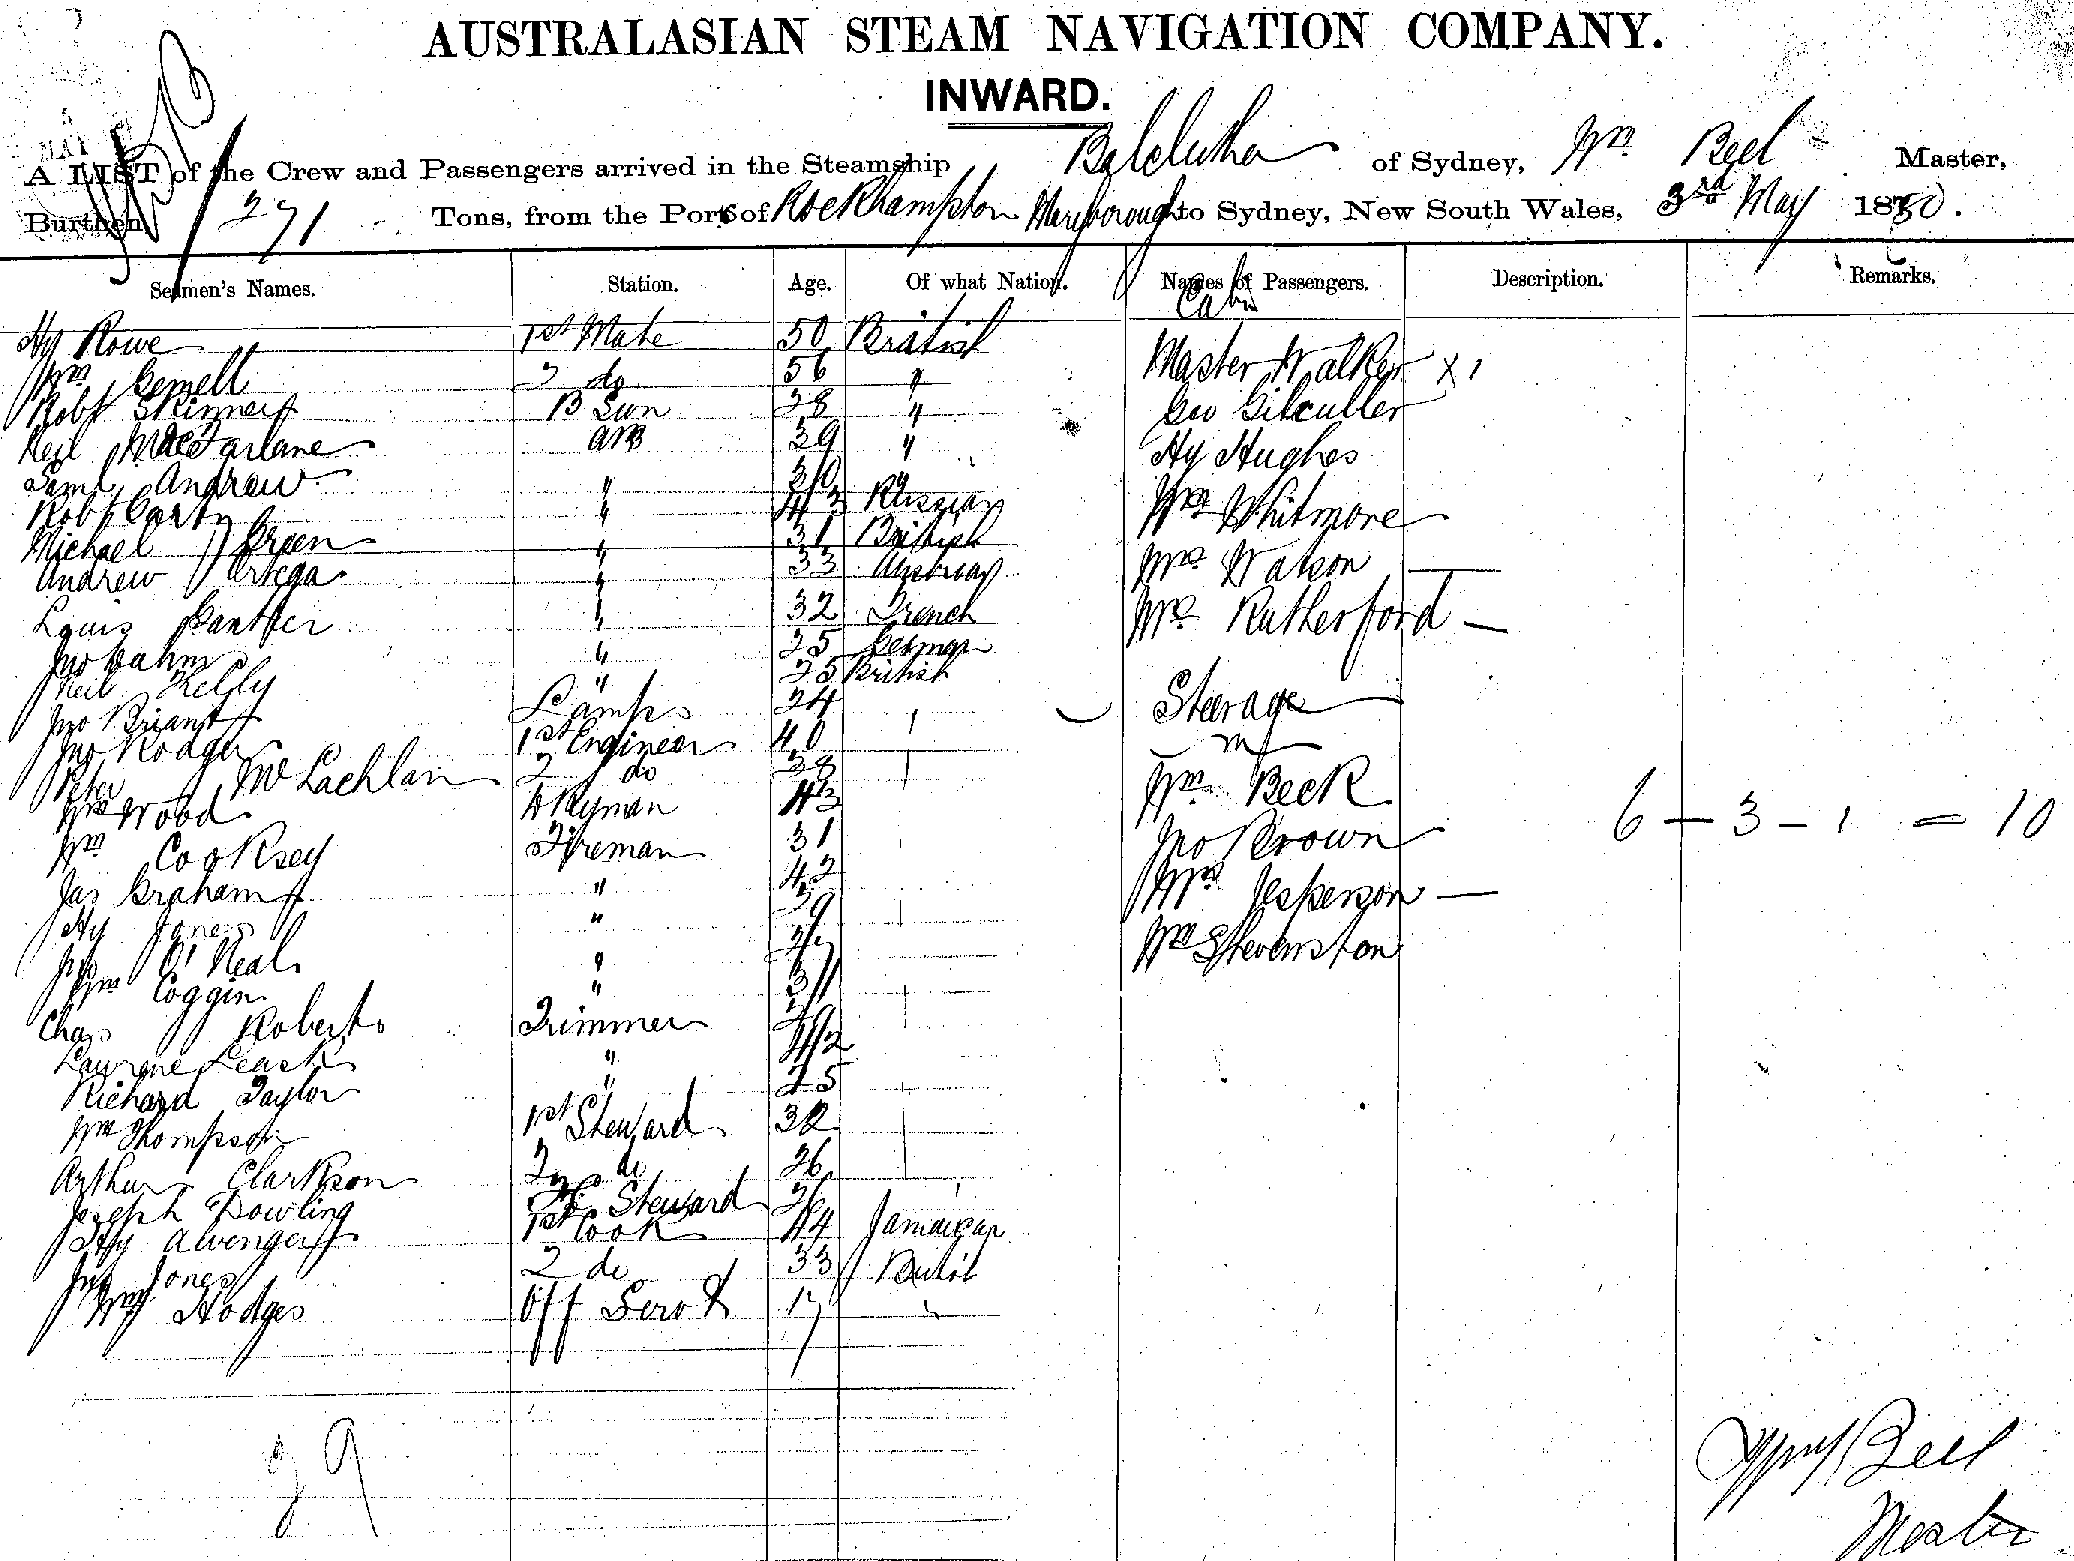 AUSTRALASIAN STEAM NAVIGATION COMPANY.
INWARD.
A LIST of the Crew and Passengers arrived in the Steamship Balclutha of Sydney, Wm Beel Master,
Burthen 271 Tons, from the Ports of Rockhampton Maryborough to Sydney, New South Wales, 3rd May 1880.
Seamen's Names. Station. Age. Of what Nation. Names of Passengers. Description. Remarks.
Cabin
Hy Rowe 1st Mate 50 British
Wm Gemell 2 do 56 " Master Walker x 1
Robt Skinner B Sun 28 " Geo Gilculler
Neil MacFarlane AB 39 " Hy Hughes
Saml Andrew " 30 "
Robt Carty " 43 Russian Mrs Whitmore
Michael Green " 31 British
Andrew Ortega " 33 Austrian Mrs Watson —
Louis Panther " 32 French Mrs Rutherford —
Jno Dahm " 25 German
Neil Kelly " 25 British
Jno Briant Lamps 24 Steerage
Jno Rodger 1st Engineer 40
Peter McLachlan 2 do 38 Wm Beck
Wm Wood Dkyman 43
Wm Cooksey Fireman 31 Jno Brown 6 – 3 – 1 = 10
Jas Graham " 42 Mrs Jesperson —
Hy Jones " 39
Jno O'Neal " 27 Wm Stevenston
Wm Coggin "
Chas Roberts Trimmer 29
Laurence Leask " 42
Richard Taylor " 25
Wm Thompson 1st Steward 32
Arthur Clarkson 2 do 26
Joseph Dowling Steward 26
Hy Avenger 1st Cook 44 Jamaican
Jno Jones 2 do 33 British
Wm Hodges Off Servt 17 "
29
Wm Beel
Master